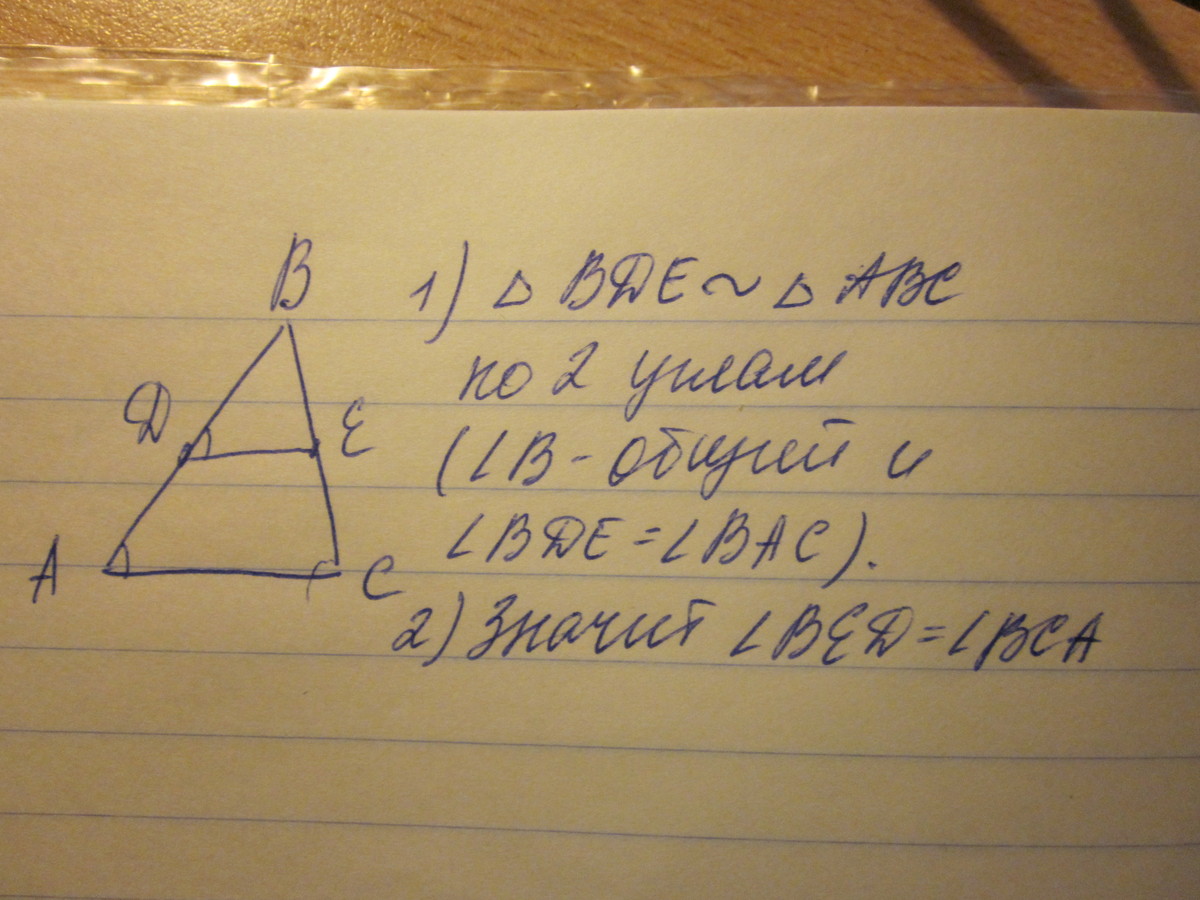 B
1) △ BDE ~ △ ABC
по 2 углам
D
E
(∠B - общий и
∠BDE = ∠BAC).
A
C
2) Значит ∠BED = ∠BCA